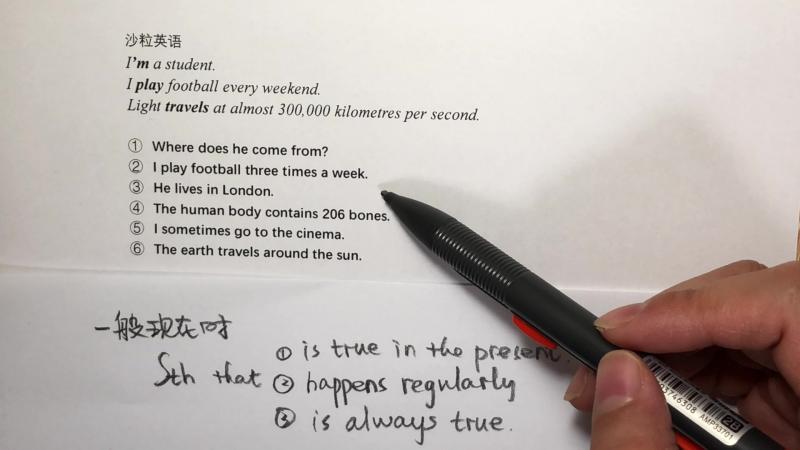 沙粒英语
I'm a student.
I play football every weekend.
Light travels at almost 300,000 kilometres per second.
① Where does he come from?
② I play football three times a week.
③ He lives in London.
④ The human body contains 206 bones.
⑤ I sometimes go to the cinema.
⑥ The earth travels around the sun.
一般现在时
Sth that ① is true in the present.
② happens regularly
③ is always true.
2B
AMP33701